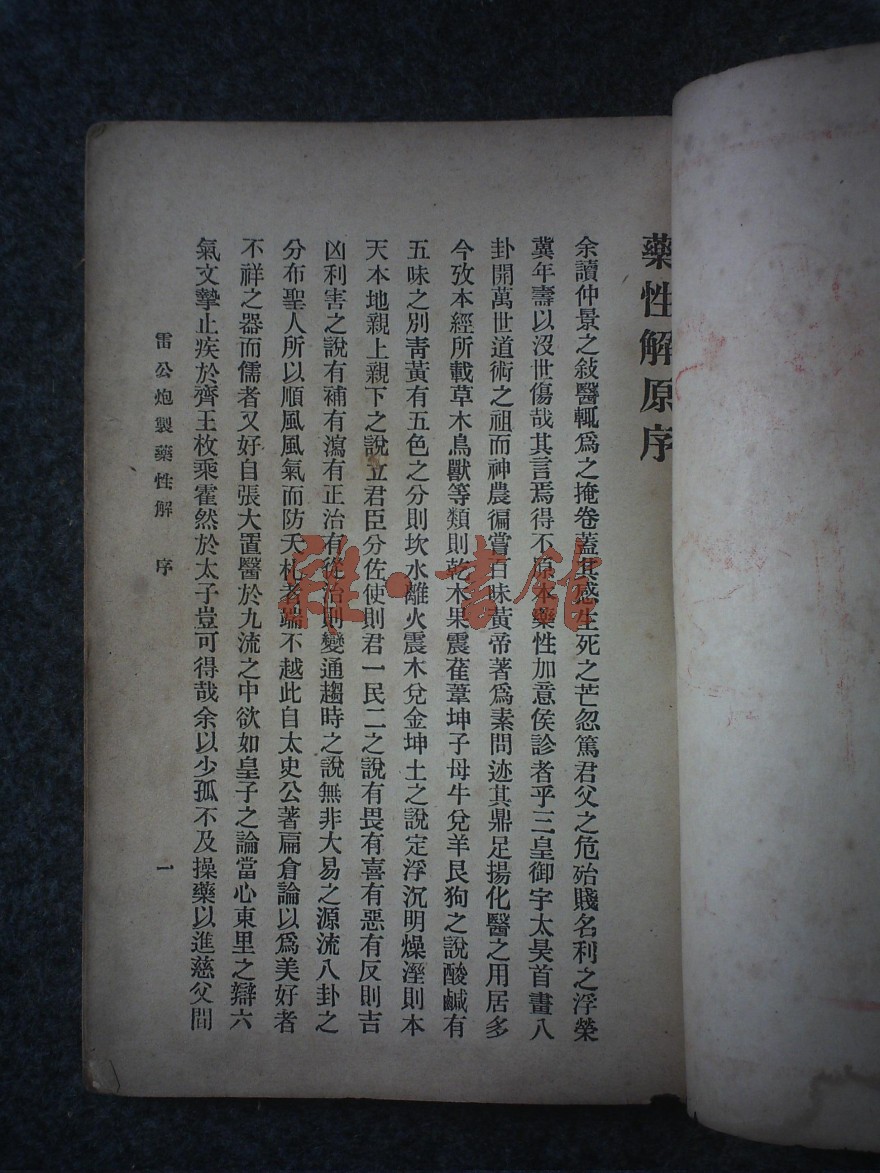 藥性解原序
余讀仲景之敍醫輒爲之掩卷蓋其感生死之芒忽篤君父之危殆賤名利之浮榮
冀年壽以沒世傷哉其言焉得不原本藥性加意侯診者乎三皇御宇太昊首畫八
卦開萬世道術之祖而神農徧嘗百味黃帝著爲素問迹其鼎足揚化醫之用居多
今攷本經所載草木鳥獸等類則乾木果震萑葦坤子母牛兌羊艮狗之說酸鹹有
五味之別靑黃有五色之分則坎水離火震木兌金坤土之說定浮沉明燥溼則本
天本地親上親下之說立君臣分佐使則君一民二之說有畏有喜有惡有反則吉
凶利害之說有補有瀉有正治有從治則變通趨時之說無非大易之源流八卦之
分布聖人所以順風風氣而防夭札者端不越此自太史公著扁倉論以爲美好者
不祥之器而儒者又好自張大置醫於九流之中欲如皇子之論當心東里之辯六
氣文摯止疾於齊王枚乘霍然於太子豈可得哉余以少孤不及操藥以進慈父問
雷公炮製藥性解 序 一
雜·書館